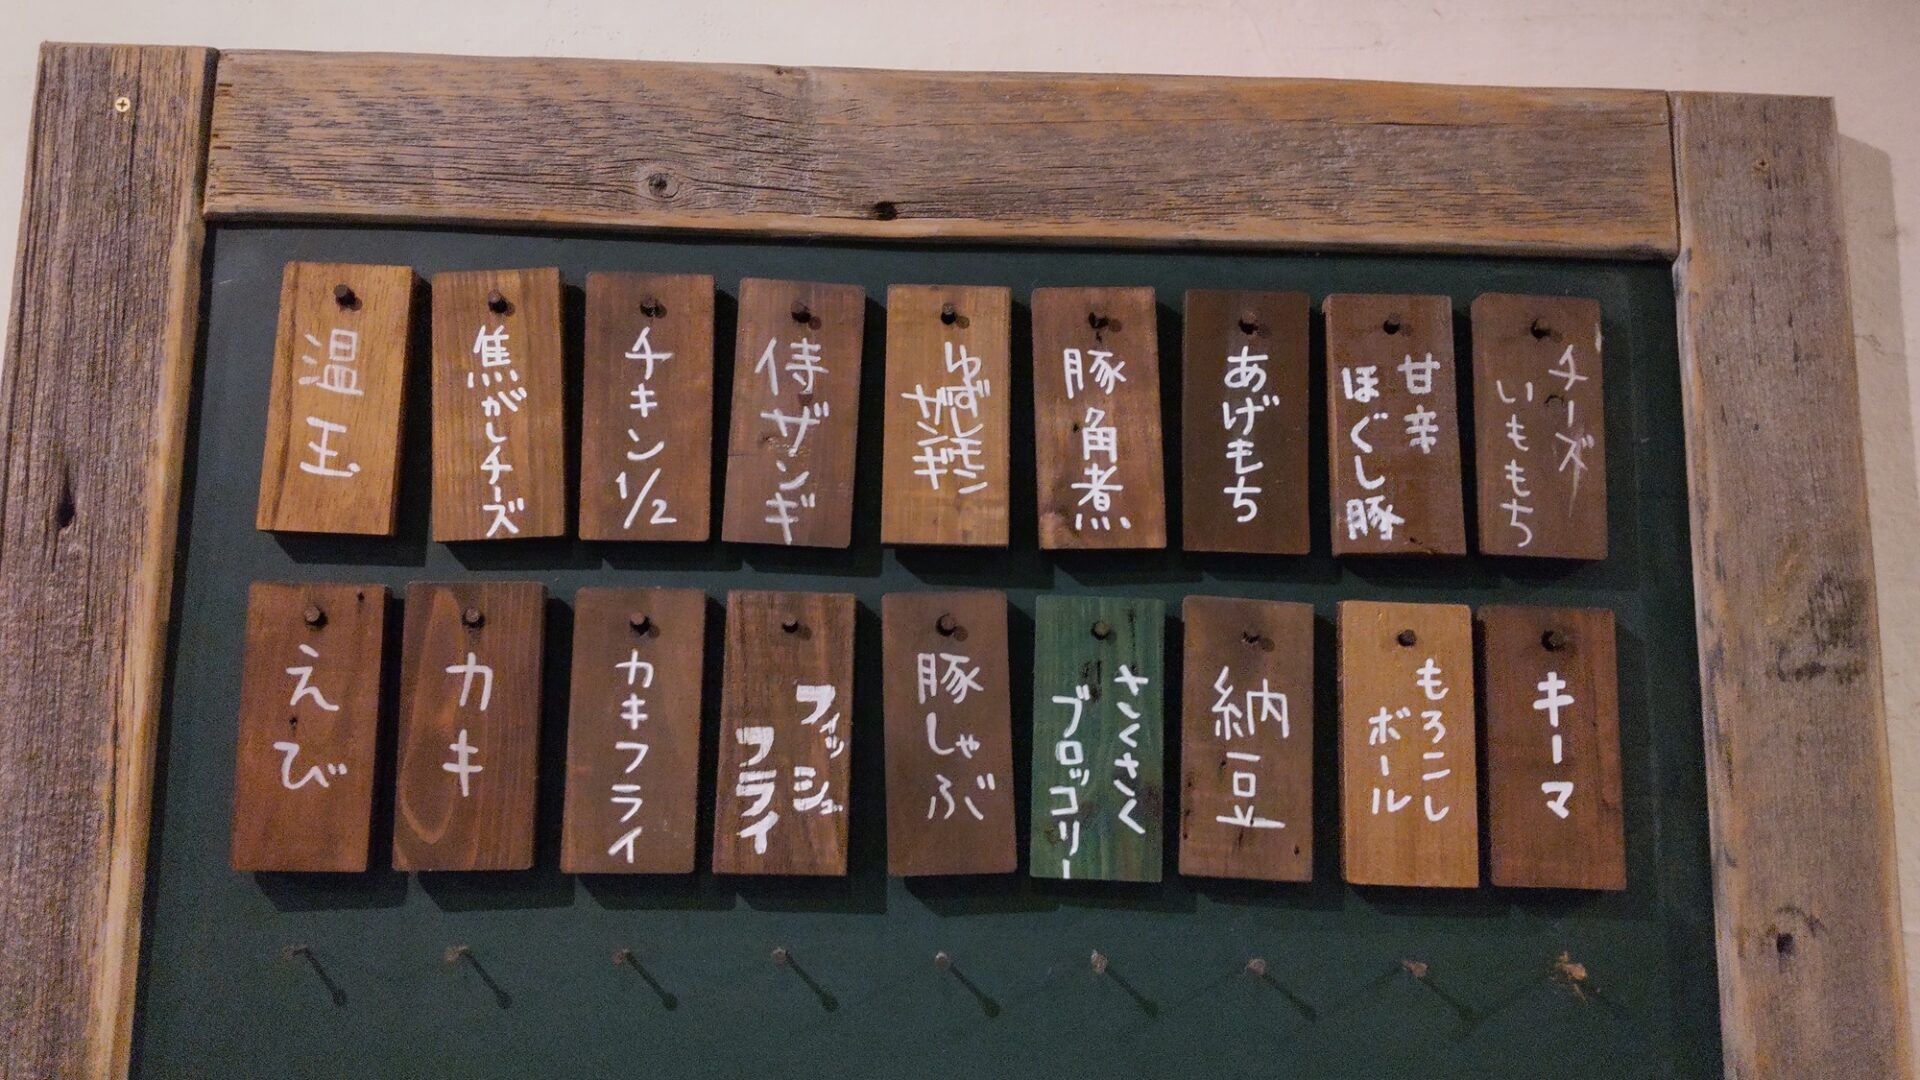 温玉
焦がしチーズ
チキン1/2
侍ザンギ
ゆずレモン
ザンギ
豚角煮
あげもち
甘辛
ほぐし豚
チーズ
いももち
えび
カキ
カキフライ
フィッシュ
フライ
豚しゃぶ
さくさく
ブロッコリー
納豆
もろこし
ボール
キーマ